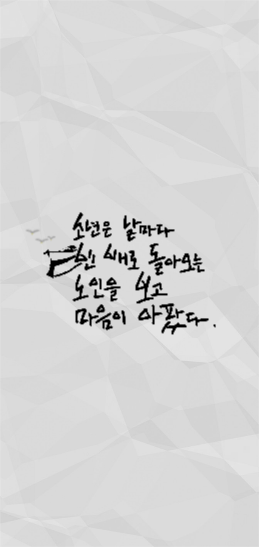 소년은 날마다
빈 배로 돌아오는
노인을 보고
마음이 아팠다.